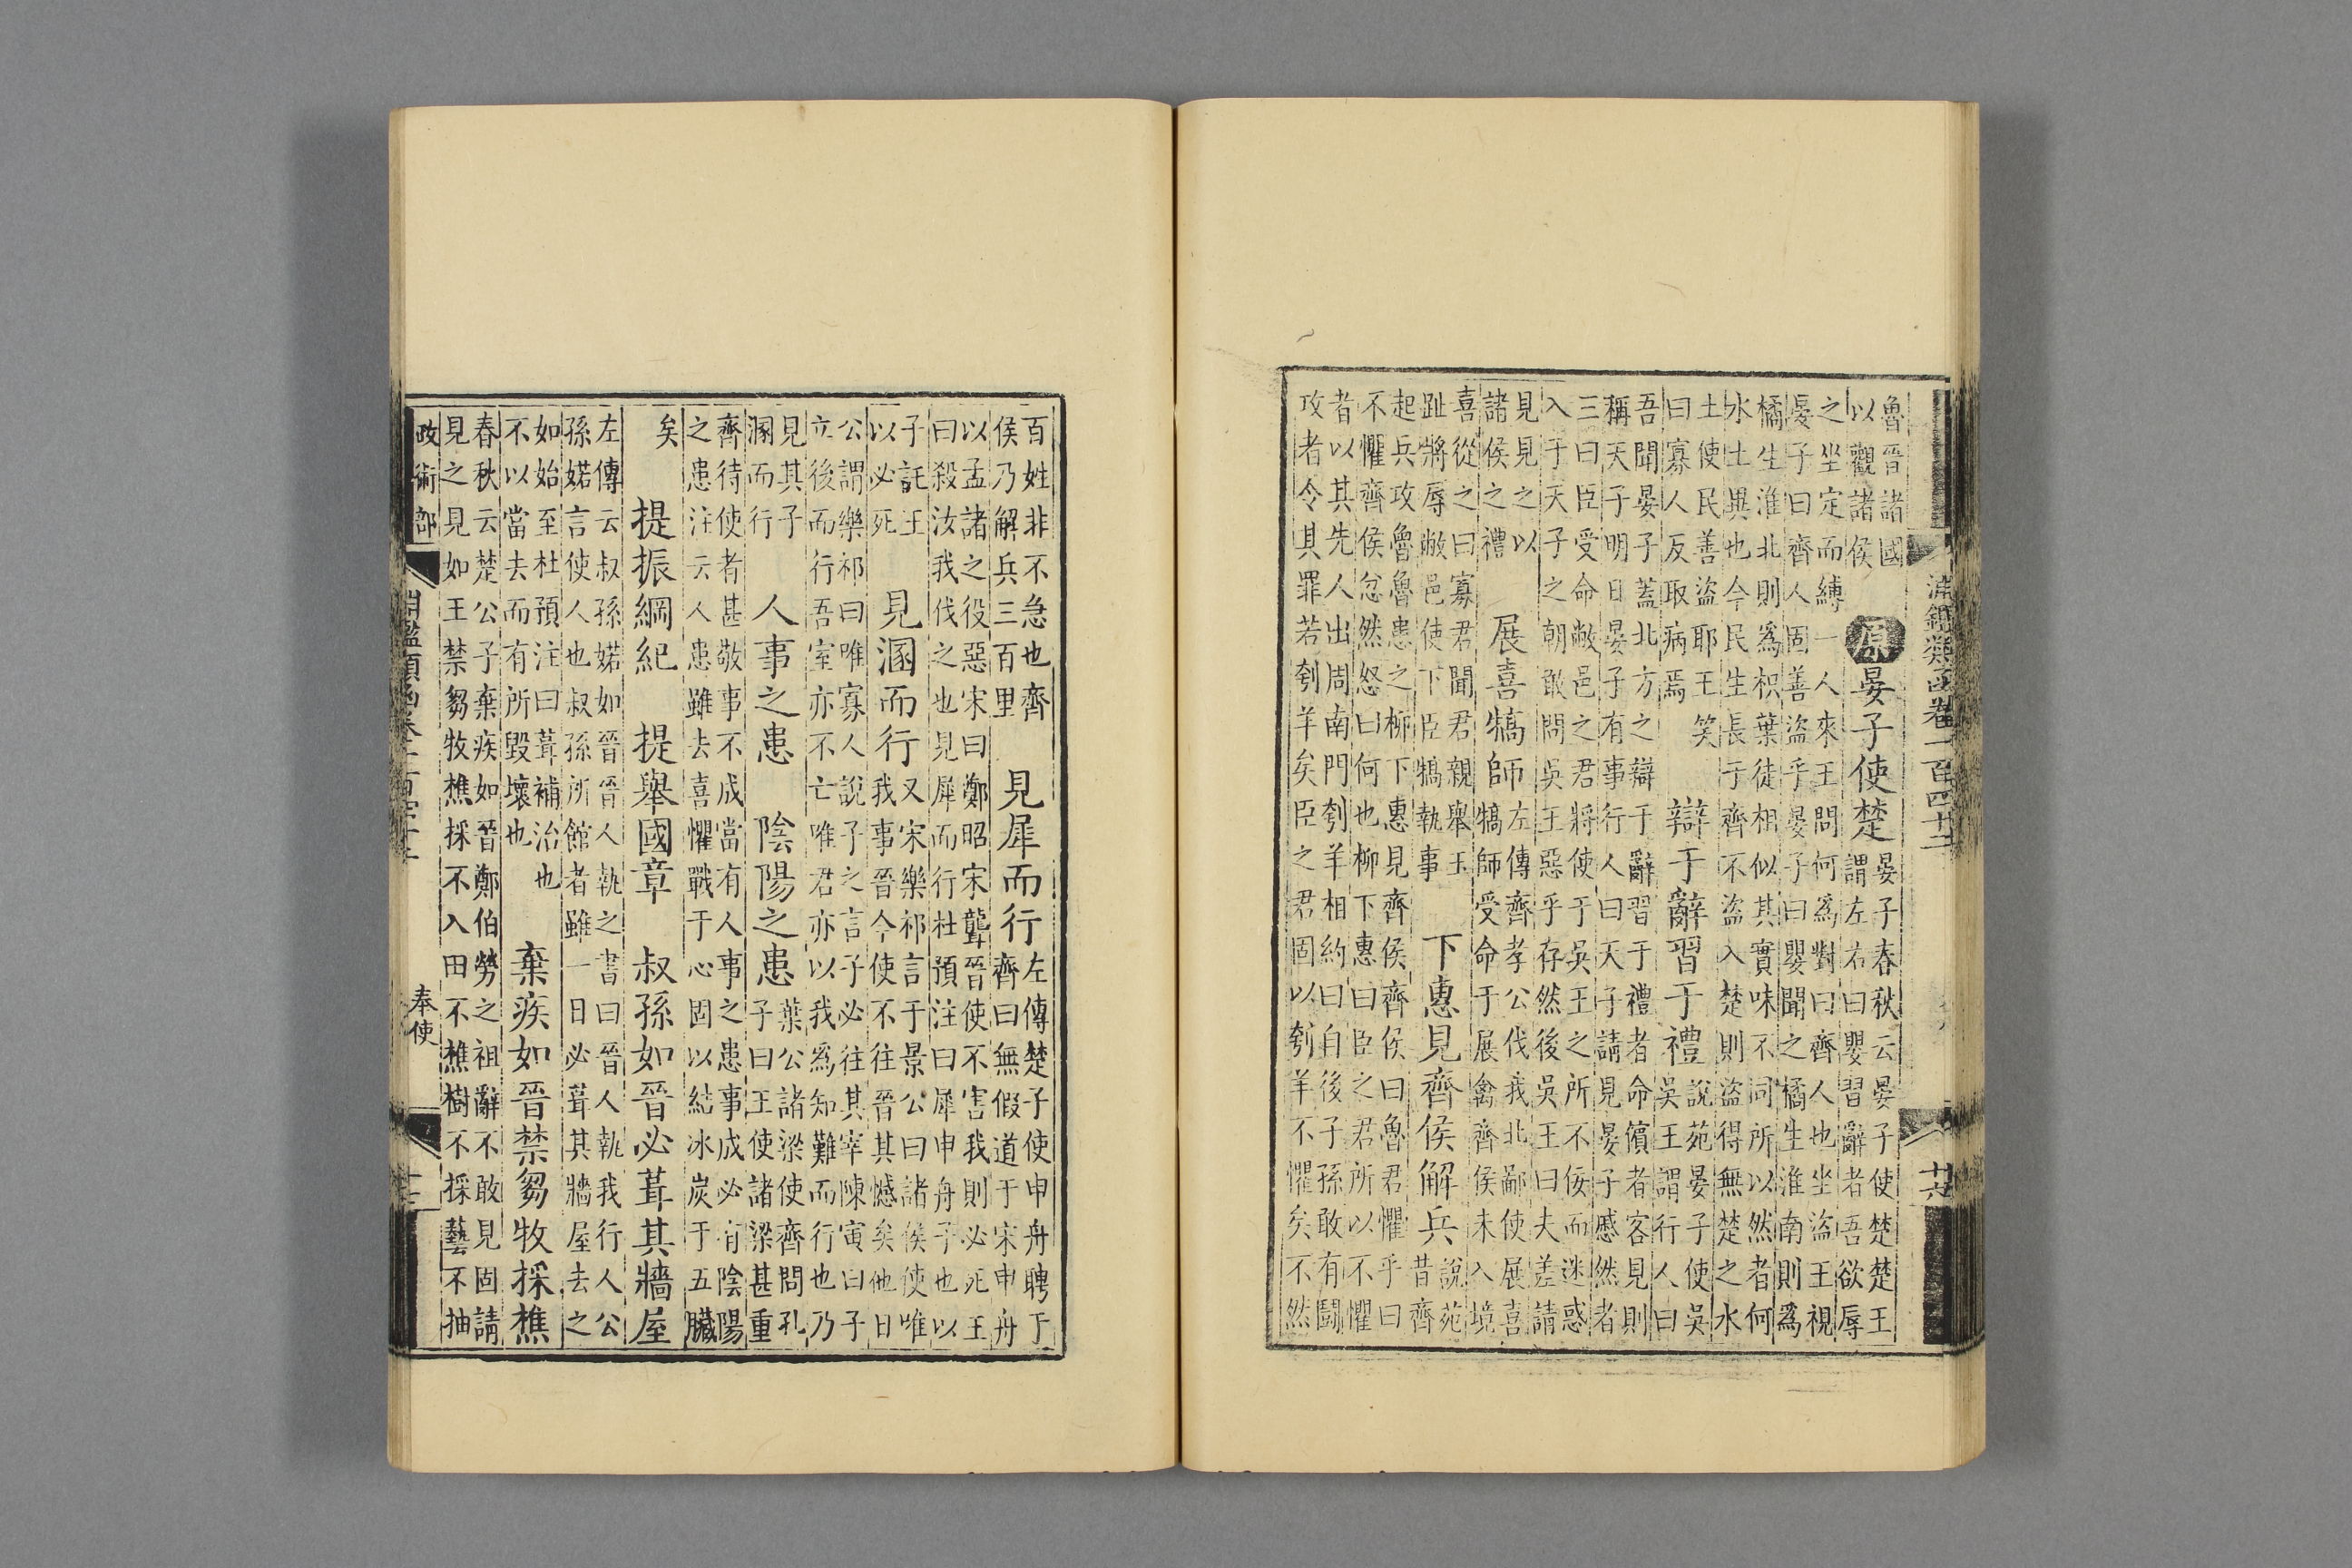 淵鑑類函卷一百四十二
十六
魯晉諸國
以觀諸侯
原晏子使楚
晏子春秋云晏子使楚楚王
謂左右曰嬰習辭者吾欲辱
之坐定而縛一人來王問何爲對曰齊人也坐盜王視
晏子曰齊人固善盜乎晏子曰嬰聞之橘生淮南則爲
橘生淮北則爲枳葉徒相似其實味不同所以然者何
水土異也今民生長于齊不盜入楚則盜得無楚之水
土使民善盜耶王笑
曰寡人反取病焉
辯于辭習于禮
說苑晏子使吳
吳王謂行人曰
吾聞晏子蓋北方之辯于辭習于禮者命儐者客見則
稱天子明日晏子有事行人曰天子請見晏子慼然者
三曰臣受命敝邑之君將使于吳王之所不佞而迷惑
入于天子之朝敢問吳王惡乎存然後吳王曰夫差請
見見之以
諸侯之禮
展喜犒師
左傳齊孝公伐我北鄙使展喜
犒師受命于展禽齊侯未入境
喜從之曰寡君聞君親舉玉
趾將辱敝邑使下臣犒執事
下惠見齊侯解兵
說苑
昔齊
起兵攻魯魯患之柳下惠見齊侯齊侯曰魯君懼乎曰
不懼齊侯忿然怒曰何也柳下惠曰臣之君所以不懼
者以其先人出周南門刳羊相約曰自後子孫敢有鬬
攻者令其罪若刳羊矣臣之君固以刳羊不懼矣不然
百姓非不急也齊
侯乃解兵三百里
見犀而行
左傳楚子使申舟聘于
齊曰無假道于宋申舟
以孟諸之役惡宋曰鄭昭宋聾晉使不害我則必死王
曰殺汝我伐之也見犀而行杜預注曰犀申舟子也以
子託王
以必死
見溷而行
又宋樂祁言于景公曰諸侯使唯
我事晉今使不往晉其憾矣他日
公謂樂祁曰唯寡人說子之言子必往其宰陳寅曰子
立後而行吾室亦不亡唯君亦以我爲知難而行也乃
見其子
溷而行
人事之患 陰陽之患
葉公諸梁使齊問孔
子曰王使諸梁甚重
齊待使者甚敬事不成當有人事之患事成必有陰陽
之患注云人患雖去喜懼戰于心固以結冰炭于五臟
矣
提振綱紀 提舉國章 叔孫如晉必葺其牆屋
左傳云叔孫婼如晉晉人執之書曰晉人執我行人公
孫婼言使人也叔孫所館者雖一日必葺其牆屋去之
如始至杜預注曰葺補治也
不以當去而有所毀壞也
棄疾如晉禁芻牧採樵
春秋云楚公子棄疾如晉鄭伯勞之祖辭不敢見固請
見之見如王禁芻牧樵採不入田不樵樹不採藝不抽
政術部
淵鑑類函卷一百四十二
奉使